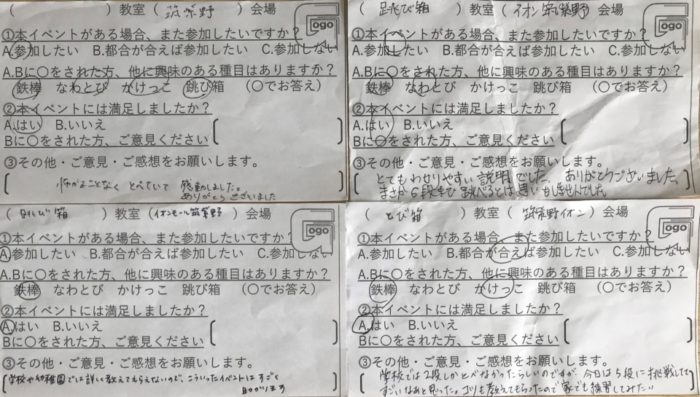 ( )教室( 筑紫野 )会場
①本イベントがある場合、また参加したいですか?
A.参加したい B.都合が合えば参加したい C.参加しない
A.Bに〇をされた方、他に興味のある種目はありますか?
鉄棒 なわとび かけっこ 跳び箱 (〇でお答え)
②本イベントには満足しましたか?
A.はい B.いいえ
Bに〇をされた方、ご意見ください
③その他・ご意見・ご感想をお願いします。
怖がることなく とべていて 感動しました。
ありがとうございました
Logo
( 跳び箱 )教室( イオン筑紫野 )会場
①本イベントがある場合、また参加したいですか?
A.参加したい B.都合が合えば参加したい C.参加しない
A.Bに〇をされた方、他に興味のある種目はありますか?
鉄棒 なわとび かけっこ 跳び箱 (〇でお答え)
②本イベントには満足しましたか?
A.はい B.いいえ
Bに〇をされた方、ご意見ください
③その他・ご意見・ご感想をお願いします。
とてもわかりやすい説明でした。ありがとうございました。
まさか6段も跳べるとは思いもしませんでした。
Logo
( 跳び箱 )教室( イオンモール筑紫野 )会場
①本イベントがある場合、また参加したいですか?
A.参加したい B.都合が合えば参加したい C.参加しない
A.Bに〇をされた方、他に興味のある種目はありますか?
鉄棒 なわとび かけっこ 跳び箱 (〇でお答え)
②本イベントには満足しましたか?
A.はい B.いいえ
Bに〇をされた方、ご意見ください
③その他・ご意見・ご感想をお願いします。
学校や幼稚園では詳しく教えてもらえないので、こういったイベントはすごく
助かります
Logo
( とび箱 )教室( 筑紫野イオン )会場
①本イベントがある場合、また参加したいですか?
A.参加したい B.都合が合えば参加したい C.参加しない
A.Bに〇をされた方、他に興味のある種目はありますか?
鉄棒 なわとび かけっこ 跳び箱 (〇でお答え)
②本イベントには満足しましたか?
A.はい B.いいえ
Bに〇をされた方、ご意見ください
③その他・ご意見・ご感想をお願いします。
学校では2段しかとべなかったらしいのですが、今日は5段に挑戦してて
すごいなぁと思った。コツも教えてもらったので家でも練習してみたい
Logo